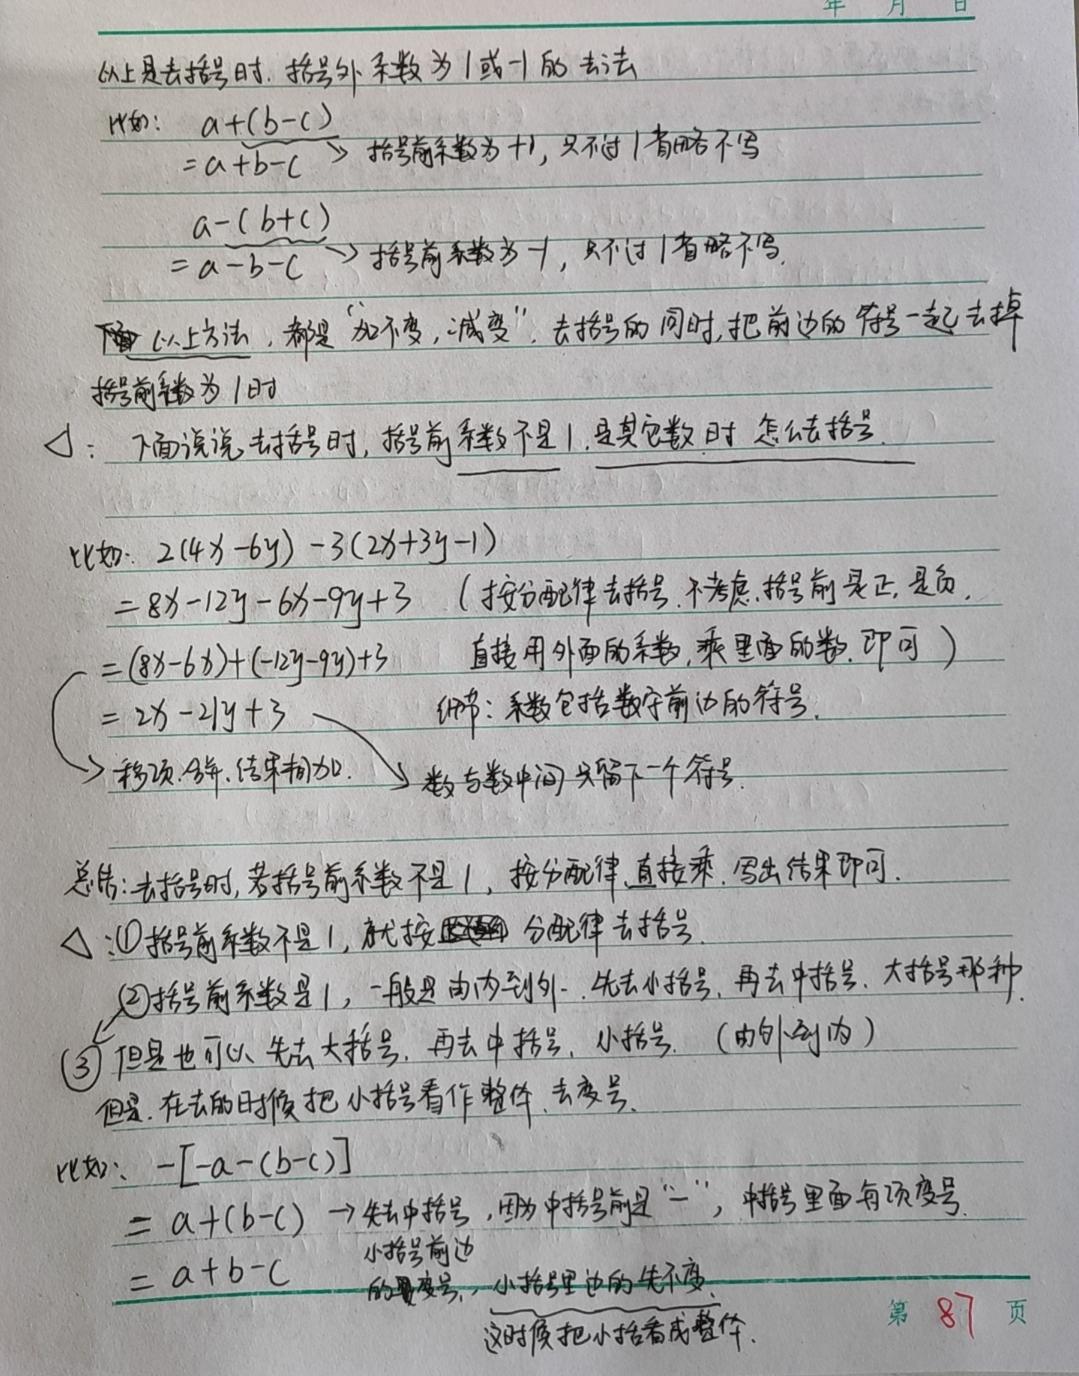 年 月 日
以上是去括号时.括号外系数为1或-1的去法
比如: a+(b-c)
=a+b-c → 括号前系数为+1,只不过1省略不写
a-(b+c)
=a-b-c → 括号前系数为-1,只不过1省略不写.
以上方法,都是"加不变,减变".去括号的同时,把前边的符号一起去掉
括号前系数为1时
△: 下面说说去括号时,括号前系数不是1.是其它数时 怎么去括号.
比如: 2(4x-6y)-3(2x+3y-1)
=8x-12y-6x-9y+3 (按分配律去括号.不考虑.括号前是正.是负.
=(8x-6x)+(-12y-9y)+3 直接用外面的系数,乘里面的数.即可)
=2x-21y+3 细节:系数包括数字前边的符号.
→移项.合并.结果相加. 数与数中间只留下一个符号.
总结:去括号时,若括号前系数不是1,按分配律.直接乘.写出结果即可.
△:①括号前系数不是1,就按 分配律去括号.
②括号前系数是1,一般是由内到外.先去小括号.再去中括号.大括号那种.
③但是也可以先去大括号.再去中括号.小括号.(由外到内)
但是.在去的时候把小括号看作整体.去变号.
比如: -[-a-(b-c)]
=a+(b-c) →先去中括号,因为中括号前是"-",中括号里面各项变号.
小括号前边
=a+b-c 的变号,小括号里边的先不变.
这时候把小括看成整体.
第 87 页